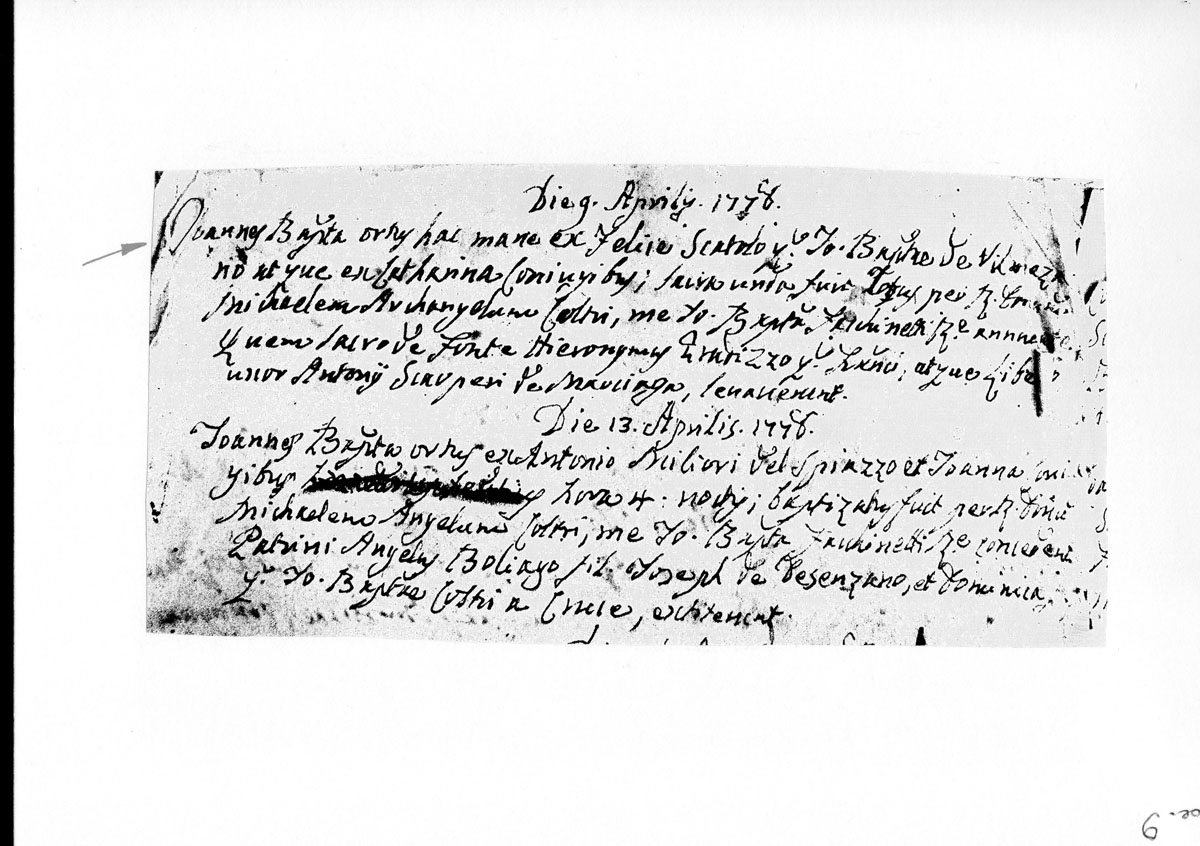 Die 9. Aprilis. 1776.
Joannes Bapta ortus hac mane ex Felice Scatolo q. Jo. Baptae de Vilmezza
no atque ex Catharina Coniugibus; sacra unda fuit lotus per R. Dnum
Michaelem Archangelum Coltri, me Jo. Bapta Fachinetti Re annuente,
Quem sacro de Fonte Hieronymus q. atque
uxor Antonij Scarperi de Marciaga, levaverunt.
Die 13. Aprilis. 1776.
Joannes Bapta ortus ex Antonio Miliori del Spiazzo et Joanna coniu
gibus hora 4. noctis; baptizatus fuit per R. Dnum
Michaelem Angelum Coltri, me Jo. Bapta Fachinetti Re concedent
Patrini Angelus Boliago fil. Joseph de Desenzano, et Dominica
q. Jo. Baptae Coltri a Cruce, extiterunt.
9